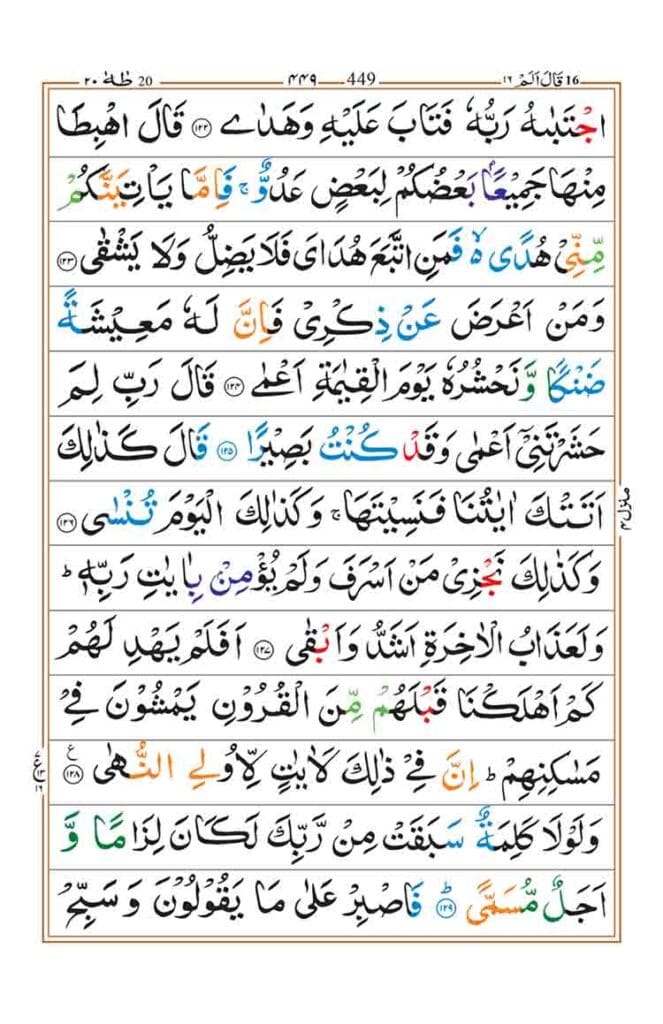 ١٦ قَالَ اَلَمْ 16 449 ٤٤٩ 20 طٰهٰ ٢٠
اجْتَبٰىهُ رَبُّهٗ فَتَابَ عَلَيْهِ وَهَدٰى ۝١٢٢ قَالَ اهْبِطَا
مِنْهَا جَمِيْعًۢا بَعْضُكُمْ لِبَعْضٍ عَدُوٌّ ۚ فَاِمَّا يَاْتِيَنَّكُمْ
مِّنِّيْ هُدًى ۙ فَمَنِ اتَّبَعَ هُدَايَ فَلَا يَضِلُّ وَلَا يَشْقٰى ۝١٢٣
وَمَنْ اَعْرَضَ عَنْ ذِكْرِيْ فَاِنَّ لَهٗ مَعِيْشَةً
ضَنْكًا وَّنَحْشُرُهٗ يَوْمَ الْقِيٰمَةِ اَعْمٰى ۝١٢٤ قَالَ رَبِّ لِمَ
حَشَرْتَنِيْٓ اَعْمٰى وَقَدْ كُنْتُ بَصِيْرًا ۝١٢٥ قَالَ كَذٰلِكَ
اَتَتْكَ اٰيٰتُنَا فَنَسِيْتَهَا ۚ وَكَذٰلِكَ الْيَوْمَ تُنْسٰى ۝١٢٦
وَكَذٰلِكَ نَجْزِيْ مَنْ اَسْرَفَ وَلَمْ يُؤْمِنْۢ بِاٰيٰتِ رَبِّهٖ ؕ
وَلَعَذَابُ الْاٰخِرَةِ اَشَدُّ وَاَبْقٰى ۝١٢٧ اَفَلَمْ يَهْدِ لَهُمْ
كَمْ اَهْلَكْنَا قَبْلَهُمْ مِّنَ الْقُرُوْنِ يَمْشُوْنَ فِيْ
مَسٰكِنِهِمْ ؕ اِنَّ فِيْ ذٰلِكَ لَاٰيٰتٍ لِّاُولِي النُّهٰى ۝١٢٨ ع
وَلَوْلَا كَلِمَةٌ سَبَقَتْ مِنْ رَّبِّكَ لَكَانَ لِزَامًا وَّ
اَجَلٌ مُّسَمًّى ۝١٢٩ؕ فَاصْبِرْ عَلٰى مَا يَقُوْلُوْنَ وَسَبِّحْ
منزل ٤